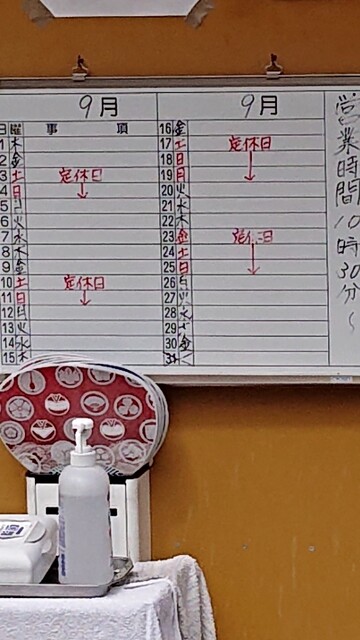 9月
日 曜 事 項
1 木
2 金
3 土 定休日
4 日 ↓
5 月
6 火
7 水
8 木
9 金
10 土 定休日
11 日 ↓
12 月
13 火
14 水
15 木
9月
16 金
17 土 定休日
18 日
19 月 ↓
20 火
21 水
22 木
23 金 定休日
24 土
25 日 ↓
26 月
27 火
28 水
29 木
30 金
31
営業時間10時30分〜